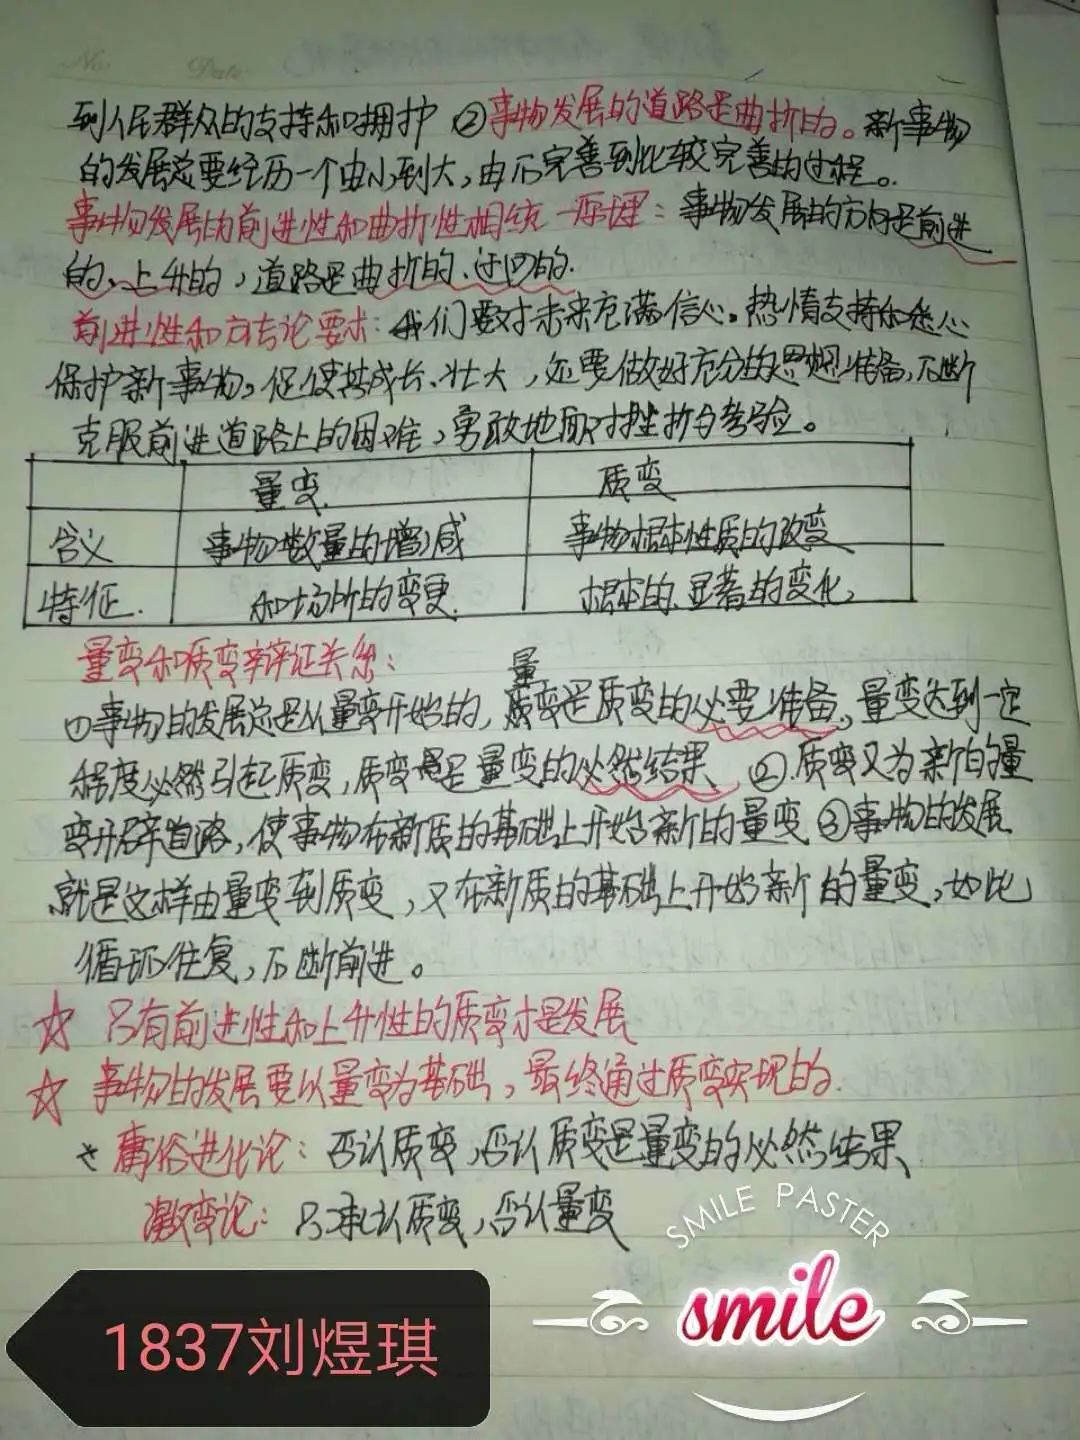 No.
Date
到人民群众的支持和拥护 ②事物发展的道路是曲折的。新事物
的发展总要经历一个由小到大,由不完善到比较完善的过程。
事物发展的前进性和曲折性相统一原理:事物发展的方向是前进
的、上升的,道路是曲折的、迂回的.
前进性和方法论要求:我们要对未来充满信心。热情支持和悉心
保护新事物。促使其成长、壮大,还要做好充分的思想准备,不断
克服前进道路上的困难,勇敢地面对挫折与考验。
量变 质变
含义 事物数量的增减 事物根本性质的改变
特征. 和场所的变更. 根本的、显著的变化,
量变和质变辩证关系:
量
①事物的发展总是从量变开始的,质变是质变的必要准备。量变达到一定
程度必然引起质变,质变是量变的必然结果 ②.质变又为新的量
变开辟道路,使事物在新质的基础上开始新的量变 ③事物的发展
就是这样由量变到质变,又在新质的基础上开始新的量变,如此
循环往复,不断前进。
☆ 只有前进性和上升性的质变才是发展
☆ 事物的发展要以量变为基础,最终通过质变实现的.
庸俗进化论:否认质变,否认质变是量变的必然结果
激变论:只承认质变,否认量变
SMILE PASTER
smile
SMILE PASTER
1837刘煜琪